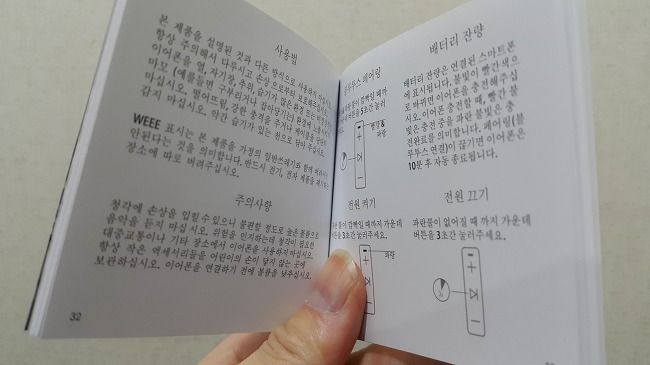 사용법
본 제품을 설명된 것과 다른 방식으로 사용하지 마십시오.
항상 주의해서 다루시고 손상으로부터 보호해주십시오.
이어폰을 열, 자기장, 추위, 습기가 많은 환경 또는
마모 (예를들면 구부러거나 잡아당기는) 환경에
마십시오. 떨어뜨림, 강한 충격을 주거나 케이블을
감지 마십시오. 약간 습기가 있는 천으로 닦아 주십시오.
WEEE 표시는 본 제품을 가정의 일반쓰레기와 함께
안된다는 것을 의미합니다. 반드시 전기, 전자 제품을
장소에 따로 버려주십시오.
주의사항
청각에 손상을 입힐 수 있으니 불편할 정도로 높은 볼륨으로
음악을 듣지 마십 시오. 위험을 인지하는데 청각이 필요한
대중교통이나 기타 장소에서 이어폰을 사용하지 마십시오.
항상 작은 액세서리들을 어린이의 손이 닿지 않는 곳에
보관하십시오. 이어폰을 연결하기 전에 볼륨을 낮추십시오.
32
블루투스 페어링
깜빡일 때까
5초간 눌러
빨강 &
파랑
전원 켜기
불이 깜빡일 때까지 가운데
3초간 눌러주세요.
파랑
배터리 잔량
배터리 잔량은 연결된 스마트폰
에 표시됩니다. 불빛이 빨간색으
로 바뀌면 이어폰을 충전해주십
시오. 이어폰 충전할 때, 빨간 불
빛은 충전 중을 파란 불빛은 충
전완료를 의미합니다. 페어링(블
루투스 연결)이 끊기면 이어폰은
10분 후 자동 종료됩니다.
전원 끄기
파란불이 없어질 때 까지 가운데
버튼을 3초간 눌러주세요.